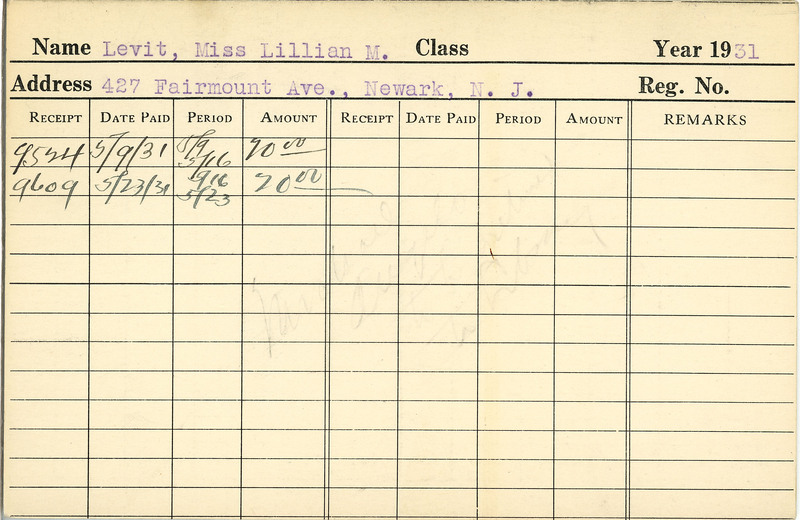 Name Levit, Miss Lillian M. Class Year 1931
Address 427 Fairmount Ave., Newark, N. J. Reg. No.
RECEIPT DATE PAID PERIOD AMOUNT RECEIPT DATE PAID PERIOD AMOUNT REMARKS
9524 5/9/31 5/9 5/16 20 00
9609 5/23/31 5/23 20 00